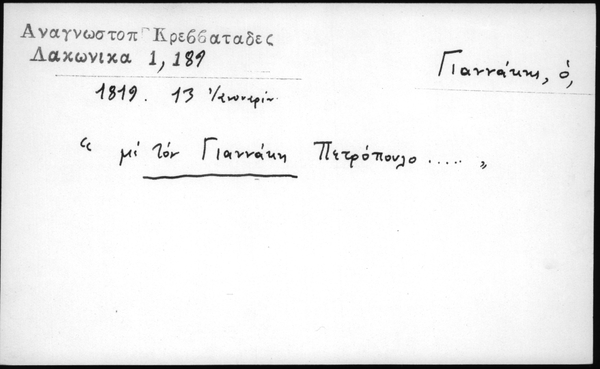 Αναγνωστοπ Κρεββαταδες
Λακωνικα 1, 189
Γιαννάκης, ὁ,
1819. 13
“ μὲ τὸν Γιαννάκη Πετρόπουλο ..... „